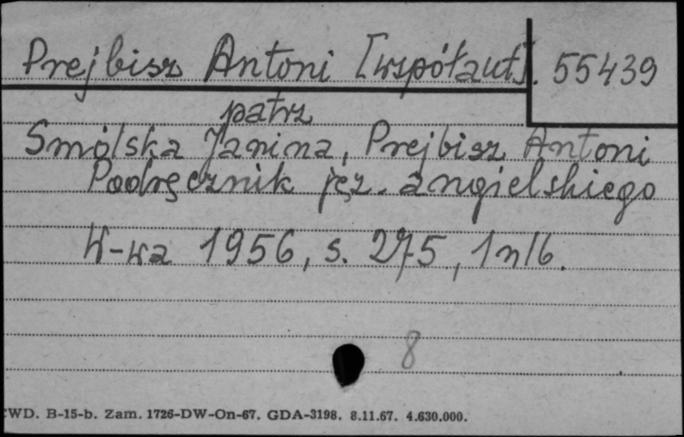 Prejbisz Antoni [współaut]. 55439
patrz
Smólska Janina, Prejbisz Antoni
Podręcznik jęz. angielskiego
W-wa 1956, s. 275, 1 nlb.
8
WD. B-15-b. Zam. 1726-DW-On-67. GDA-3198. 8.11.67. 4.630.000.